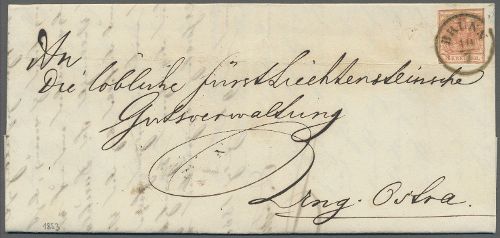 BRÜNN
An
Die löbliche fürst Liechtensteinsche
Gutsverwaltung
Ung. Ostra.
1853